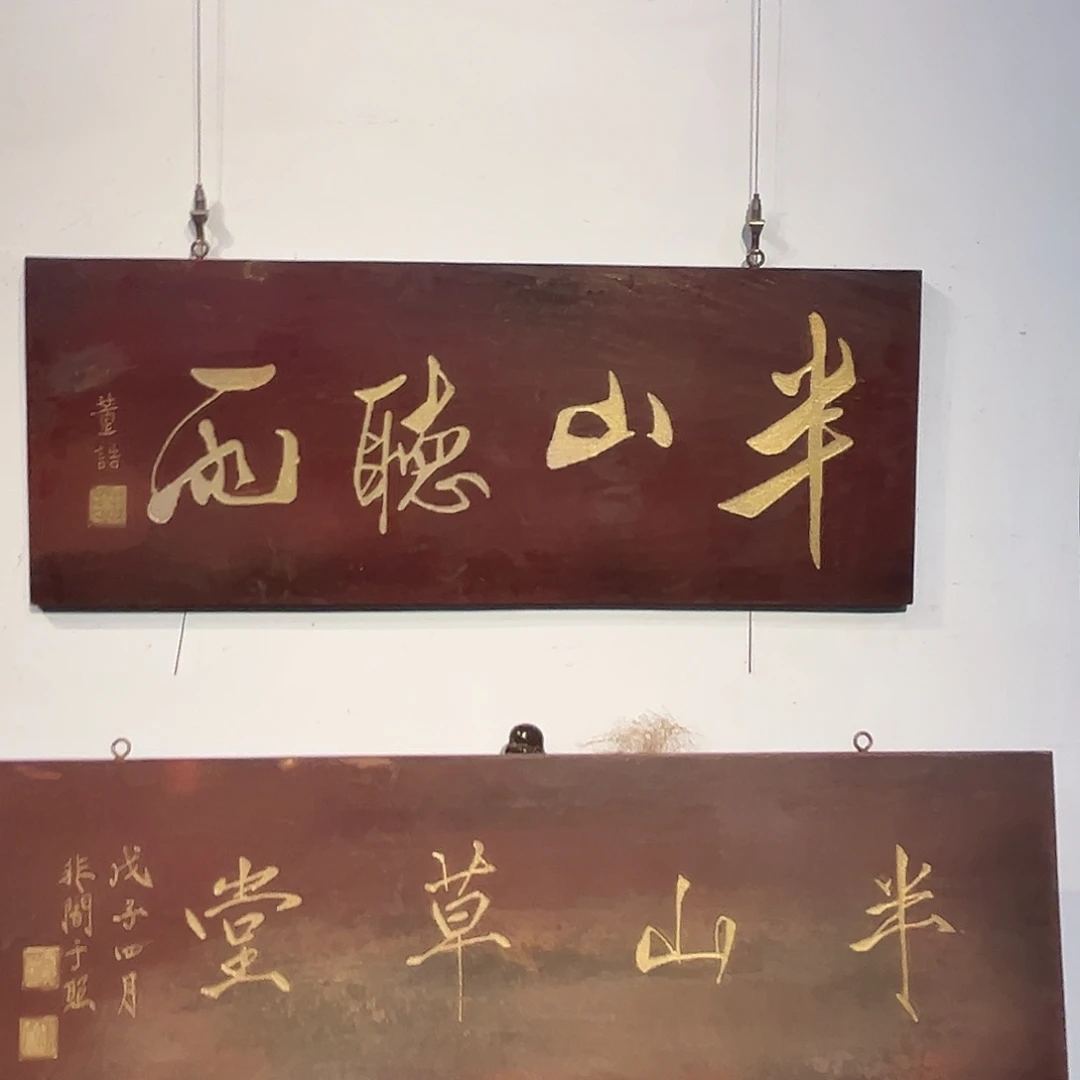 半山聽雨
董誥
半山草堂
戊子四月
非闇于照